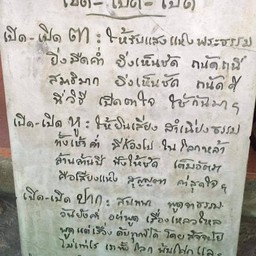 เปิด-เปิด-เปิด
เปิด-เปิด ตา : ให้รับแสงแห่งพระธรรม
ยิ่งมืดค่ำ ยิ่งเห็นชัด ถนัดถนี่
สมาธิมาก ยิ่งเห็นชัด ถนัดดี
นี่วิธี เปิดตาใจ ใช้กันมาฯ
เปิด-เปิด หู : ให้ยินเสียง สำเนียงธรรม
ทั้งเช้าค่ำ มีก้องไป ในโลกหล้า
ล้านล้านปี ฟังให้ชัด เต็มอัตรา
คือเสียงแห่ง สุญญตา ค่าสุดใจฯ
เปิด-เปิด ปาก : สนทนา พูดจาธรรม
วันยังค่ำ อย่าพูด เรื่องเหลวไหล
พูดแต่เรื่อง ดับทุกข์ได้ โดยสัจจนัย
ไม่เท่าไร เราทั้งโลก